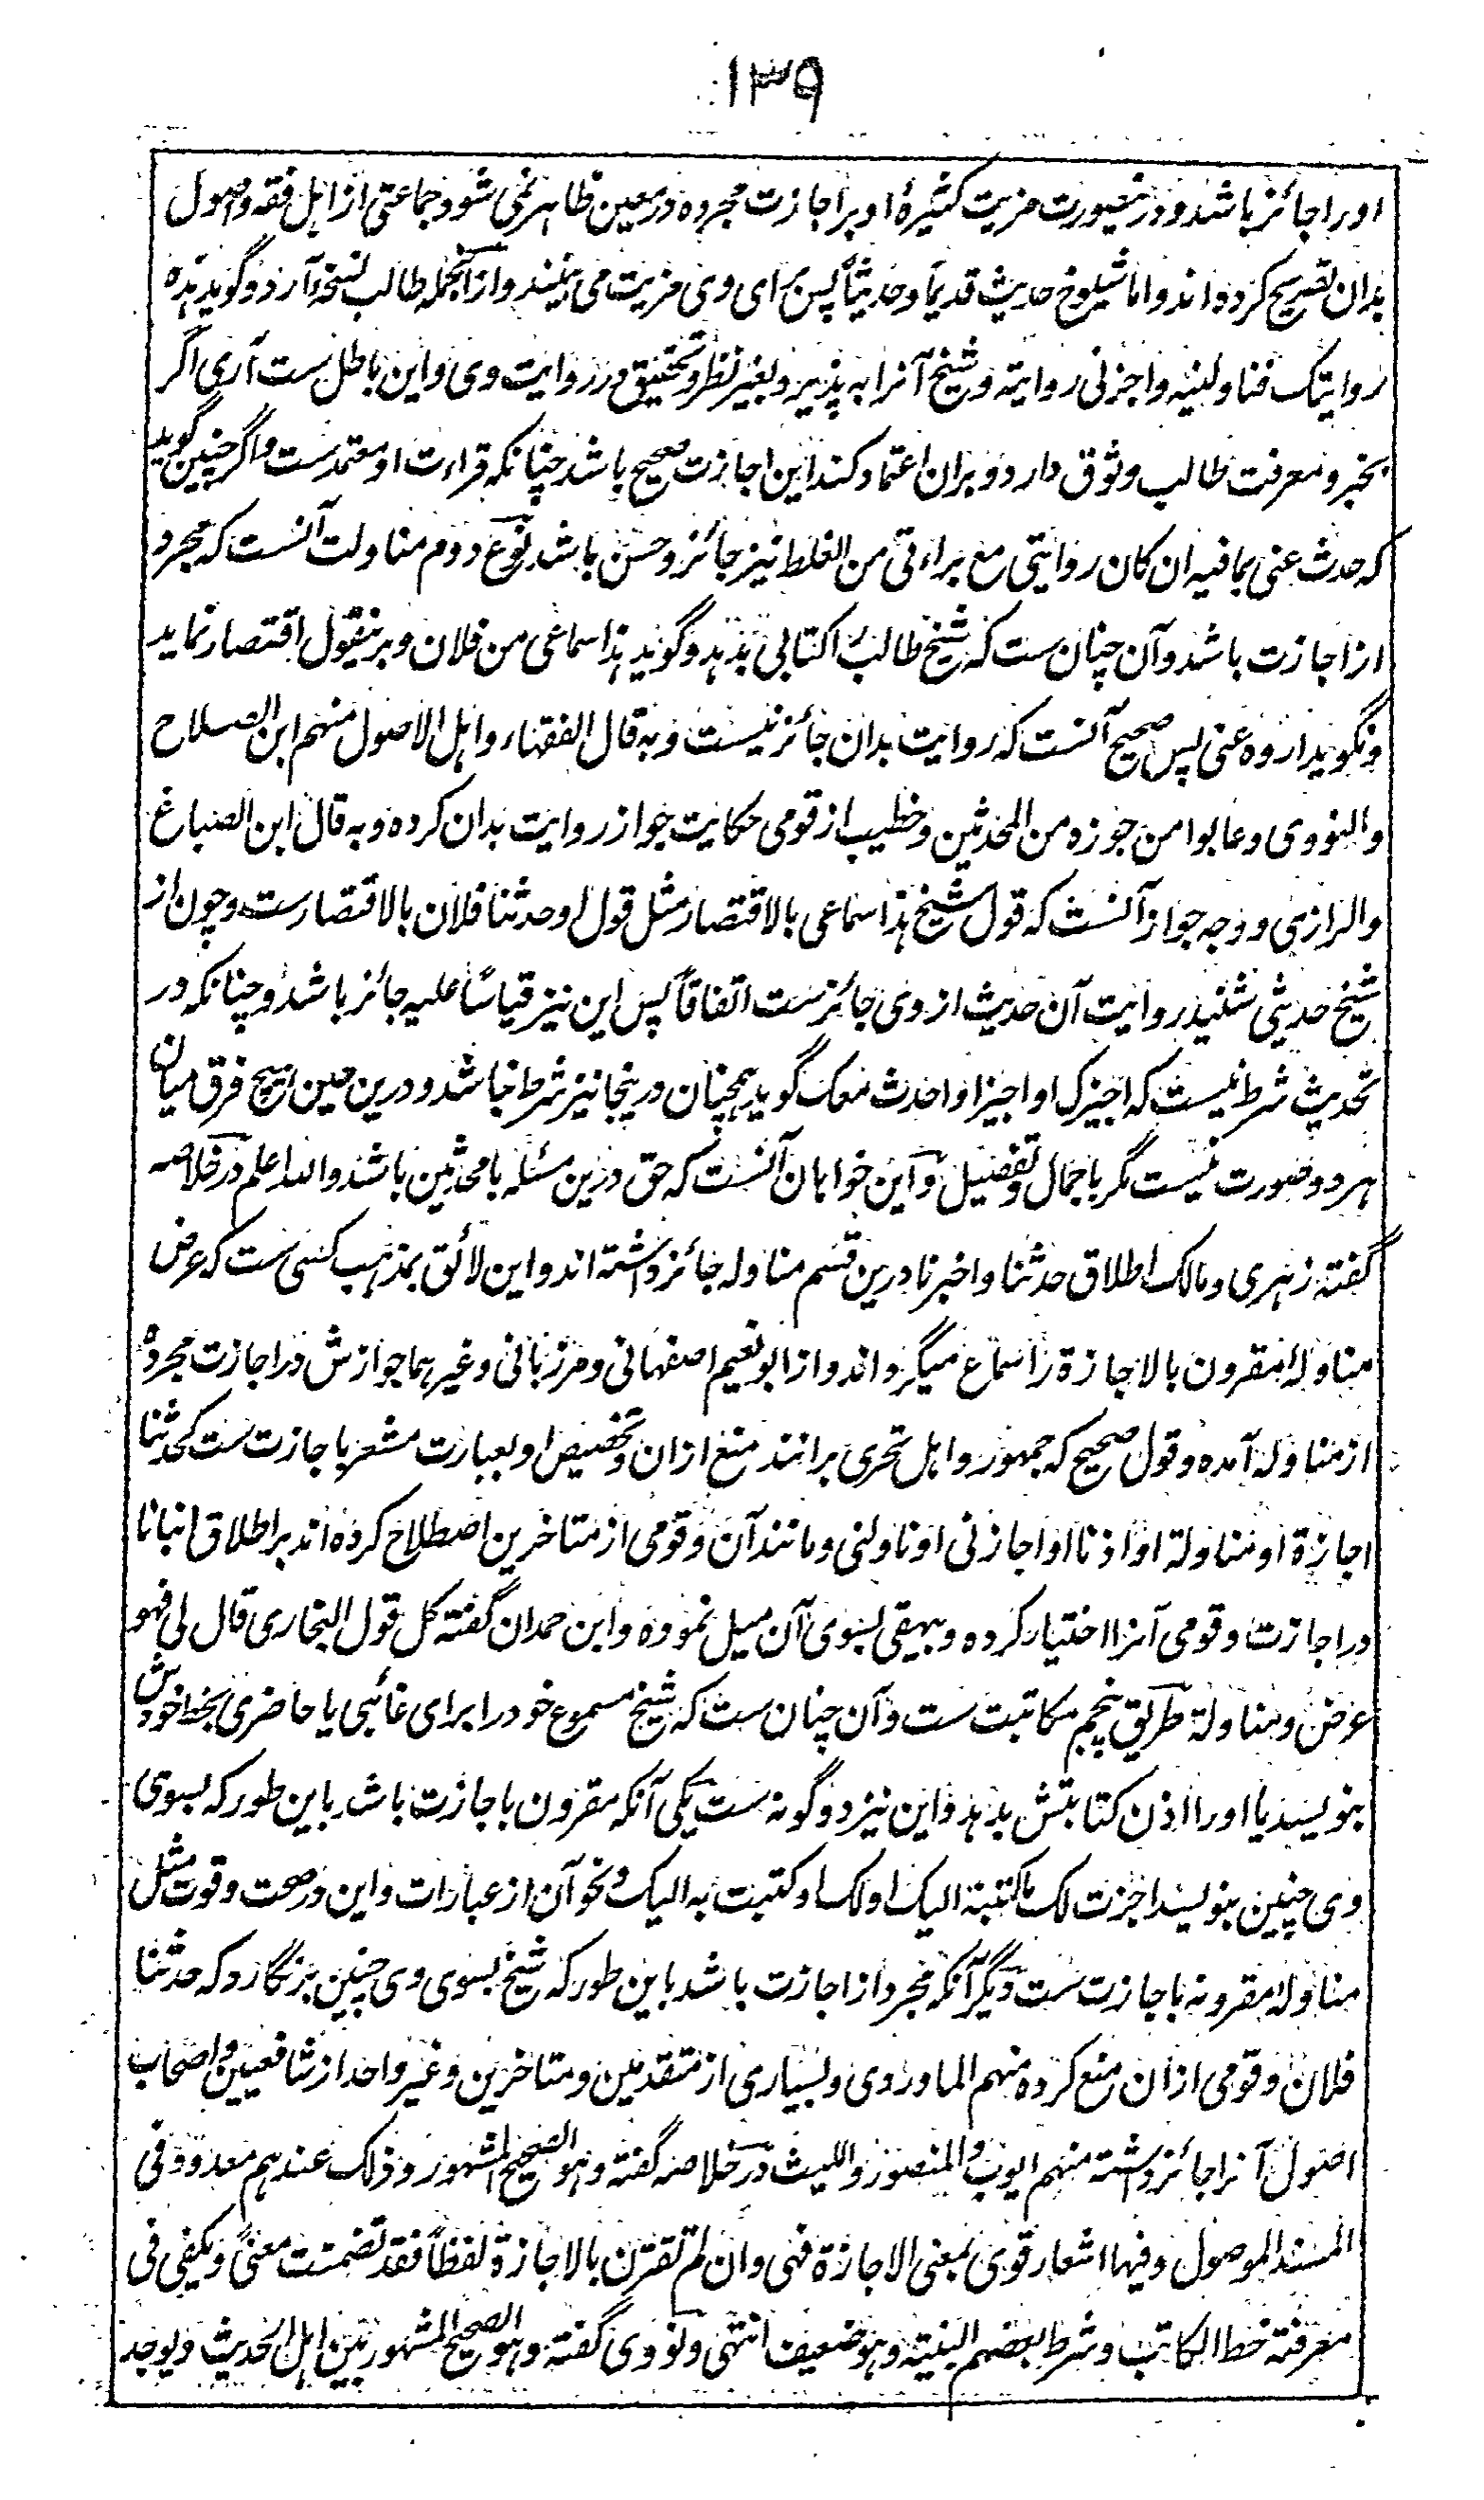 ۱۳۹
او را جائز باشد و درینصورت مزیت کثیرهٔ او بر اجازت مجرده در معین ظاهر نمی شود جماعتی از اهل فقه و اصول
بدان تصریح کرده اند و اما شیوخ حدیث قدیماً و حدیثاً پس برای وی مزیت می بینند و ازانجمله طالب نسخه آرد و گوید هذه
روایتک فناولنیه و اجزنی روایته و شیخ آنرا به پذیرد بغیر نظر و تحقیق در روایت وی و این باطل ست آری اگر
بخبر و معرفت طالب وثوق دارد و بران اعتماد کند این اجازت صحیح باشد چنانکه قراءت او معتمد ست و اگر چنین گوید
که حدث عنی بما فیه ان کان روایتی مع براءتی من الغلط نیز جائز و حسن باشد نوع دوم مناولت آنست که مجرد
از اجازت باشد و آن چنان ست که شیخ طالب را کتابی بدهد و گوید هذا سماعی من فلان و برینقول اقتصار نماید
و نگوید اروه عنی پس صحیح آنست که روایت بدان جائز نیست و به قال الفقهاء و اهل الاصول منهم ابن الصلاح
والنووی و عابوا من جوزه من المحدثین و خطیب از قومی حکایت جواز روایت بدان کرده و به قال ابن الصباغ
والرازی و وجه جواز آنست که قول شیخ هذا سماعی بالاقتصار مثل قول او حدثنا فلان بالاقتصار ست و چون از
شیخ حدیثی شنید روایت آن حدیث از وی جائز ست اتفاقاً پس این نیز قیاساً علیه جائز باشد و چنانکه در
تحدیث شرط نیست که اجیزک او اجیز او احدث معک گوید همچنان درینجا نیز شرط نباشد و درین حین هیچ فرق میان
هر دو صورت نیست مگر باجمال و تفضیل و این خواهان آنست که حق درین مسئله با محدثین باشد والله اعلم در خلاصه
گفته زهری و مالک اطلاق حدثنا و اخبرنا درین قسم مناوله جائز داشته اند و این لائق بمذهب کسی ست که عرض
مناولهٔ مقرون بالاجازة را سماع میگرداند و از ابونعیم اصفهانی و مرزبانی و غیرهما جوازش در اجازت مجرده
از مناوله آمده و قول صحیح که جمهور و اهل تحری برانند منع ازان و تخصیص او بعبارت مشعر باجازت ست کحدثنا
اجازة او مناولة او اذنا او اجازنی او ناولنی و مانند آن و قومی از متاخرین اصطلاح کرده اند بر اطلاق انبانا
در اجازت و قومی آنرا اختیار کرده و بیهقی بسوی آن میل نموده و ابن حمدان گفته کل قول البخاری قال لی فهو
عرض و مناولة طریق پنجم مکاتبت ست و آن چنان ست که شیخ مسموع خود را برای غائبی یا حاضری بخط خودش
بنویسد یا او را اذن کتابتش بدهد و این نیز دو گونه ست یکی آنکه مقرون باجازت باشد باین طور که بسوی
وی چنین بنویسد اجزت لک ما کتبته الیک او لک او کتبت به الیک و نحو آن از عبارات و این در صحت و قوت مثل
مناولهٔ مقرونه باجازت ست دیگر آنکه مجرد از اجازت باشد باین طور که شیخ بسوی وی چنین برنگارد که حدثنا
فلان و قومی ازان منع کرده منهم الماوردی و بسیاری از متقدمین و متاخرین و غیر واحد از شافعیین و اصحاب
اصول آنرا جائز داشته منهم ایوب و المنصور و اللیث در خلاصه گفته و هو الصحیح المشهور و ذلک عندهم معدود فی
المسند الموصول و فیها اشعار قوی بمعنی الاجازة فهی و ان لم تقترن بالاجازة لفظاً فقد تضمنت معنیً و یکفی فی
معرفته خط الکاتب و شرط بعضهم البنیة و هو ضعیف انتهی و نووی گفته و هو الصحیح المشهور بین اهل الحدیث و یوجد